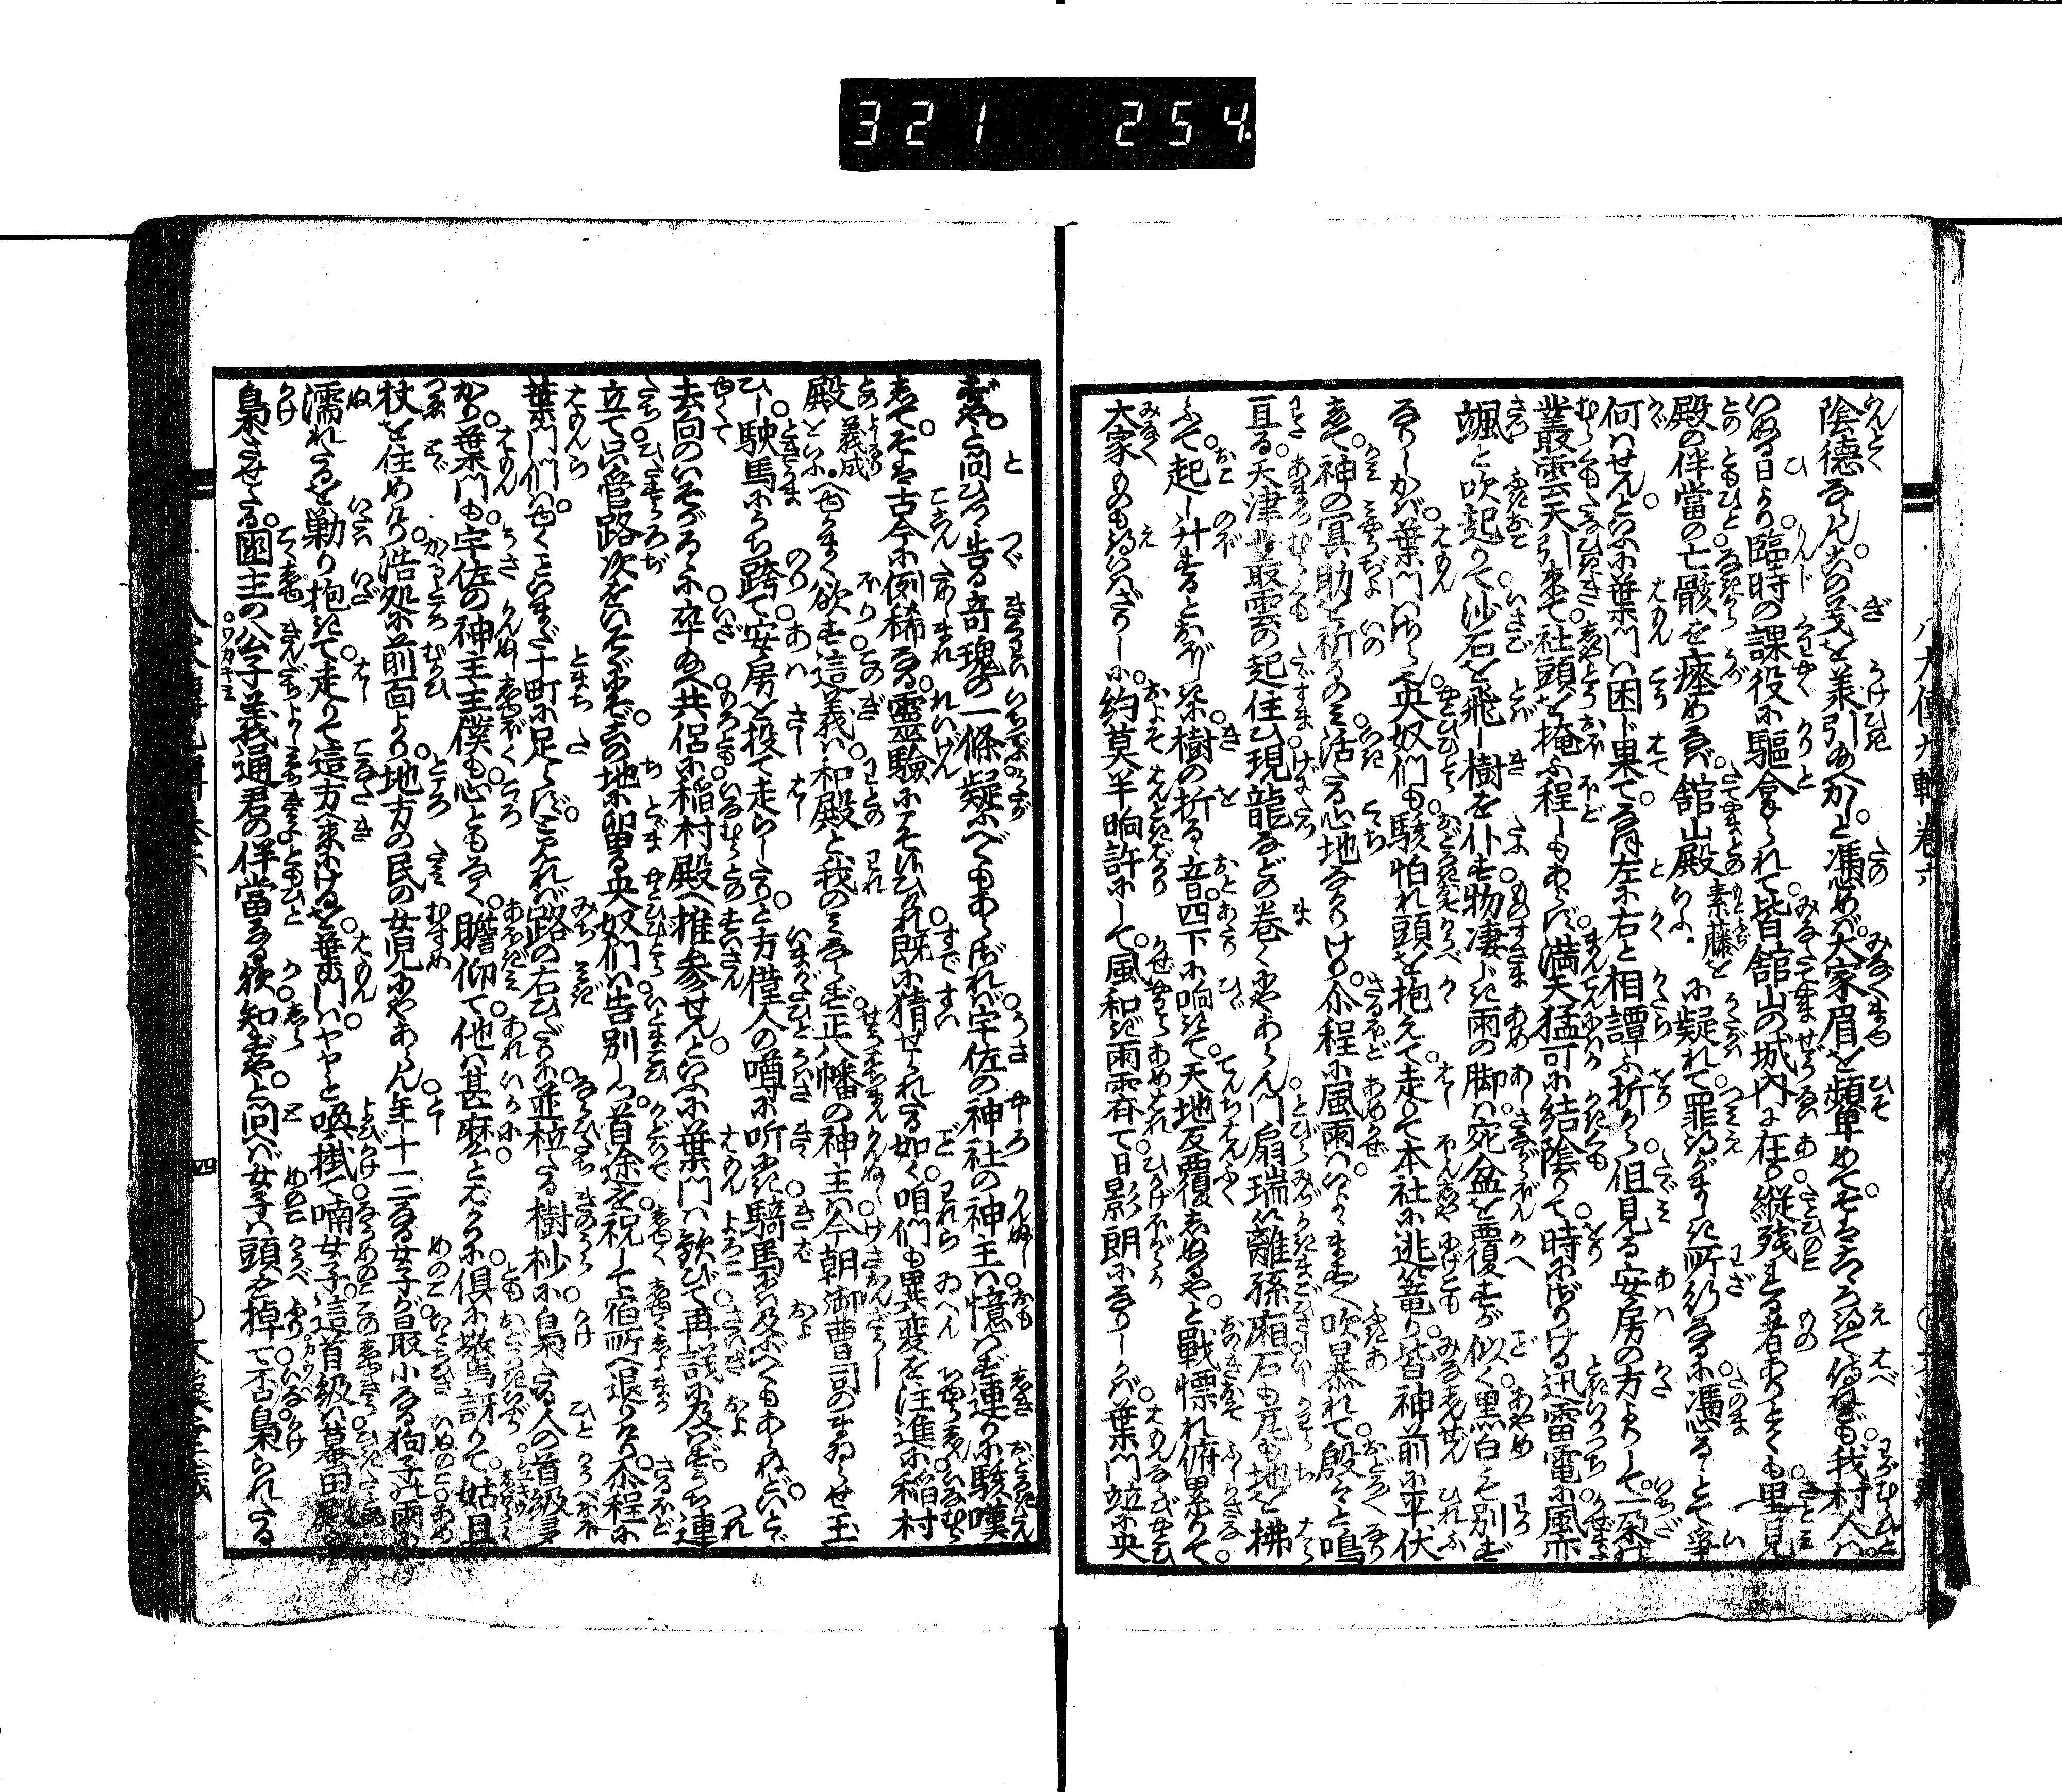 321 254.
陰德ならん。この義を美引あへかしと馮めバ。大家眉を顰めて。そはこゝろ得て侍れども。我村人ハ。
いぬる日より臨時の課役に驅拿られて。皆舘山の城内に在り。縱残れる者ありとも里見
殿の伴當の亡骸を瘞めなバ。舘山殿素藤をいふ。に疑れて罪得がましき所行なるに。馮るゝとて爭
何ハせんといふに葉門ハ困じ果て。左に右と相譚ふ折から。但見る安房の方よりして。一朶の
叢雲天引來て。社頭を掩ふ程しもあらず。満天猛可に結陰りて。時ならざりける迅雷電に風亦
颯と吹起りて。沙石を飛し樹を仆す。物凄しき雨の脚ハ。宛盆を覆すが似く。黒白も別ず
なりしかバ。葉門ハさら也。奴們も駭怕れ頭を抱えて走りて本社に逃篭り。皆神前に平伏
して。神の冥助を祈るのミ。活たる心地なかりけり。尒程に風雨ハいよゝますます吹暴れて。殷々と鳴
亘る。天津叢雲の起住ひ。現龍などの巻くにやあらん。門扇瑞籬孫廂石も瓦も地を拂
ふて。起し升するとおぼしく。樹の折るゝ音四下に响きて。天地反覆しぬるや。と戰慄れ俯累りて。
大家ものも得いハざりしに。約莫半晌許にして。風和ぎ雨霽て。日影朗になりしかバ。葉門竝に
ずや。と問ひつゝ告る竒瑰の一條。疑ふべくもあらざれバ。宇佐の神社の神主ハ。憶ハず連りに駭嘆
して。そは古今に例稀なる。靈驗にこそいひけれ。既に猜せられたる如く。咱們も異変を注進に。稲村
殿義成をいふ。へまゐらまく欲す。這義ハ和殿と我のミならず。正八幡の神主ハ。今朝御曹司のまゐらせ玉
ひし。駛馬にうち跨て。安房を投て走らしたりと。方僅人の噂に听にき。騎馬にハ及ぶべくもあらねど。いとゞ
去向のいそがるゝに。卒。共侶に稲村殿へ推參せん。といふに葉門ハ歓びて。再議に及バず。うち連
立て。只管路次をいそぐにぞ。この地に留る奴們ハ。告別しつ。首途を祝して宿所へ退りけり。尒程に
葉門們ハ。ゆくこといまだ十町に足らず。と見れバ路の右ひだりに。並松たる樹杪に。梟たる人の首級多
かり。葉門も宇佐の神主主僕も。心ともなく瞻仰て。他ハ甚麽とばかりに。倶に驚訝りて。姑且
杖を住めけり。浩処に前面より。地方の民の女児にやあらん。年十二三なる女子が。最小なる狗子の雨に
濡れたるを勦り抱きて。走りて這方へ來にけるを。葉門ハヤヤと喚掛て。喃女子。這首級ハ蟇田殿の
梟させたる。國主の公子義通君の伴當なる歟。知ずや。と問へバ女子ハ頭を掉て。否梟られたる
四